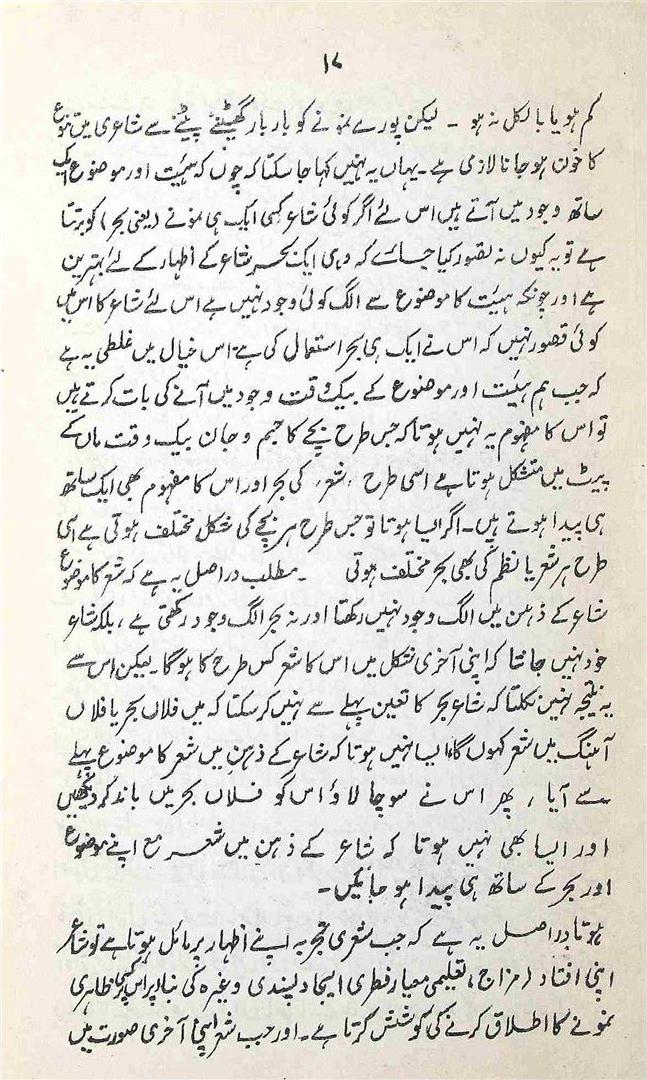 ۱۷
کم ہو یا بالکل نہ ہو ۔ لیکن پورے نمونے کو بار بار گھیٹنے پیٹنے سے شاعری میں تنوع
کا خون ہو جانا لازمی ہے ۔ یہاں یہ نہیں کہا جا سکتا کہ چوں کہ ہیئت اور موضوع ایک
ساتھ وجود میں آتے ہیں اس لئے اگر کوئی شاعر کسی ایک ہی نمونے (یعنی بحر) کو برتتا
ہے تو یہ کیوں نہ تصور کیا جائے کہ وہی ایک بحر شاعر کے اظہار کے لئے بہترین
ہے اور چونکہ ہیئت کا موضوع سے الگ کوئی وجود نہیں ہے اس لئے شاعر کا اس میں
کوئی قصور نہیں کہ اس نے ایک ہی بحر استعمال کی ہے۔ اس خیال میں غلطی یہ ہے
کہ جب ہم ہیئت اور موضوع کے بیک وقت وجود میں آنے کی بات کرتے ہیں
تو اس کا مفہوم یہ نہیں ہوتا کہ جس طرح بچے کا جسم و جان بیک وقت ماں کے
پیٹ میں متشکل ہوتا ہے اسی طرح شعر کی بحر اور اس کا مفہوم بھی ایک ساتھ
ہی پیدا ہوتے ہیں ۔ اگر ایسا ہوتا تو جس طرح ہر بچے کی شکل مختلف ہوتی ہے اسی
طرح ہر شعر یا نظم کی بھی بحر مختلف ہوتی ۔ مطلب دراصل یہ ہے کہ شعر کا موضوع
شاعر کے ذہن میں الگ وجود نہیں رکھتا اور نہ بحر الگ وجود رکھتی ہے ، بلکہ شاعر
خود نہیں جانتا کہ اپنی آخری شکل میں اس کا شعر کس طرح کا ہوگا ۔ لیکن اس سے
یہ نتیجہ نہیں نکلتا کہ شاعر بحر کا تعین پہلے سے نہیں کر سکتا کہ میں فلاں بحر یا فلاں
آہنگ میں شعر کہوں گا، ایسا نہیں ہوتا کہ شاعر کے ذہن میں شعر کا موضوع پہلے
سے آیا ، پھر اس نے سوچا لاؤ اس کو فلاں بحر میں باندھ کر دیکھیں
اور ایسا بھی نہیں ہوتا کہ شاعر کے ذہن میں شعر مع اپنے موضوع
اور بحر کے ساتھ ہی پیدا ہو جائیں ۔
ہوتا دراصل یہ ہے کہ جب شعری تجربہ اپنے اظہار پر مائل ہوتا ہے تو شاعر
اپنی افتاد (مزاج، تعلیمی معیار فطری ایجاد پسندی وغیرہ کی بنا پر اس پر کسی ظاہری
نمونے کا اطلاق کرنے کی کوشش کرتا ہے ۔ اور جب شعر اپنی آخری صورت میں